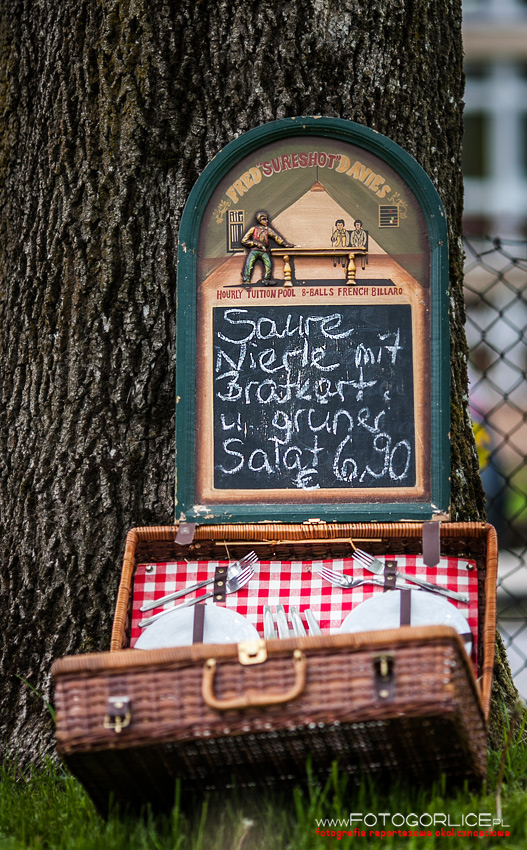 FRED "SURESHOT" DAVIES
HOURLY TUITION POOL 8-BALLS FRENCH BILLARD
Saure
Nierle mit
Bratkart.
u. grüner
Salat 6,90
€
www.FOTOGORLICE.PL
fotografie reportażowe okolicznościowe